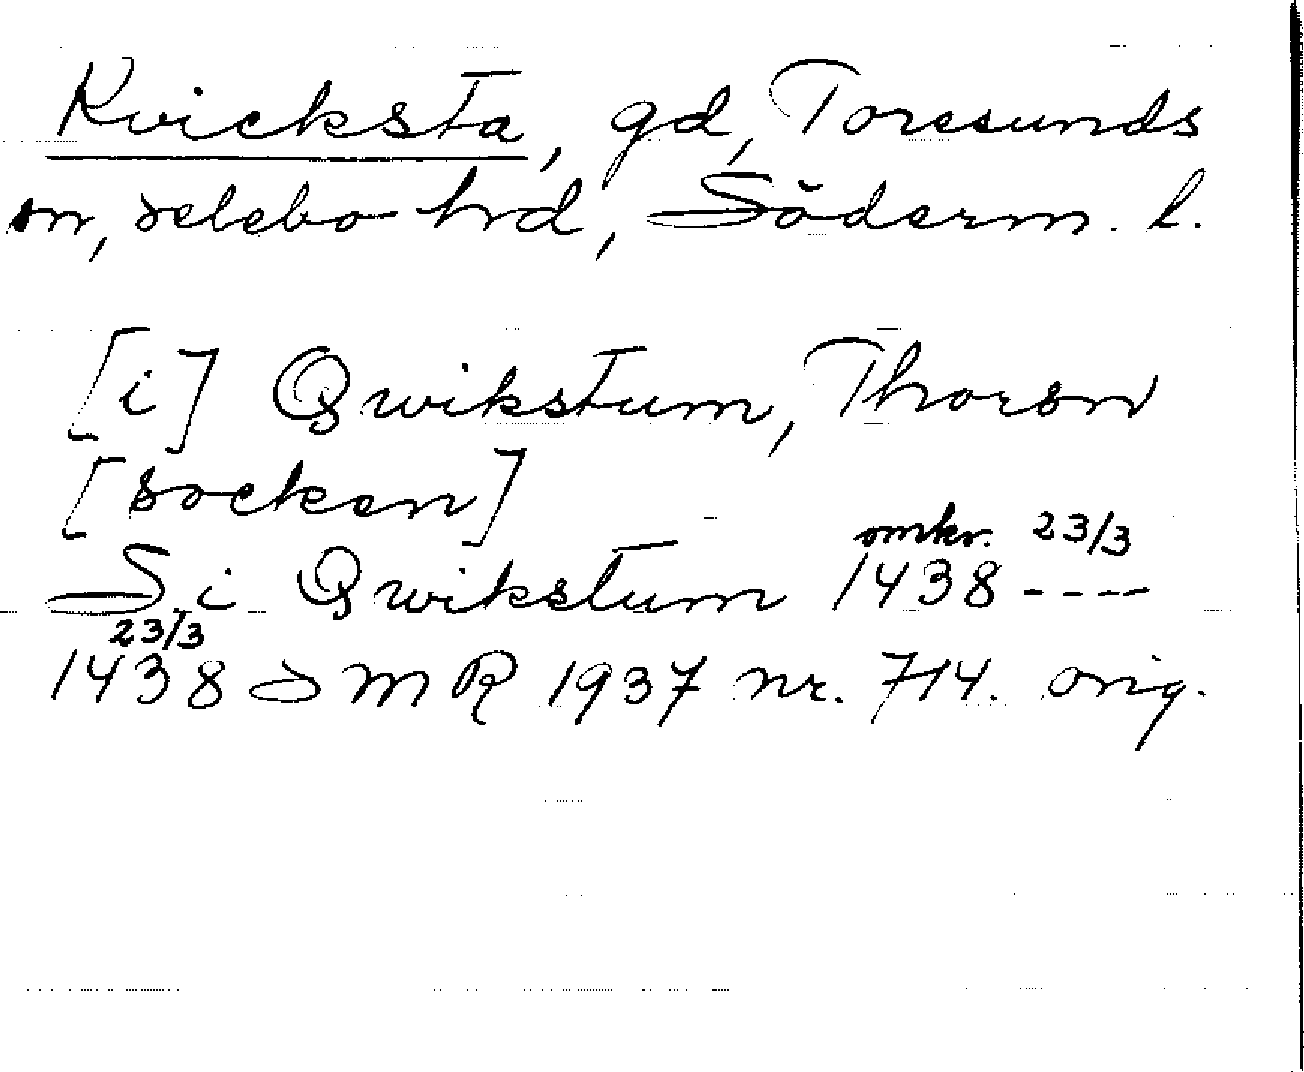 Kvicksta, gd, Toresunds
sn, Selebo hrd, Söderm. l.
[i] Qwikstum, Thorsn
[socken]
S. i Qwikstum omkr. 23/3 1438 ----
23/3 1438 SMR 1937 nr. 714. orig.